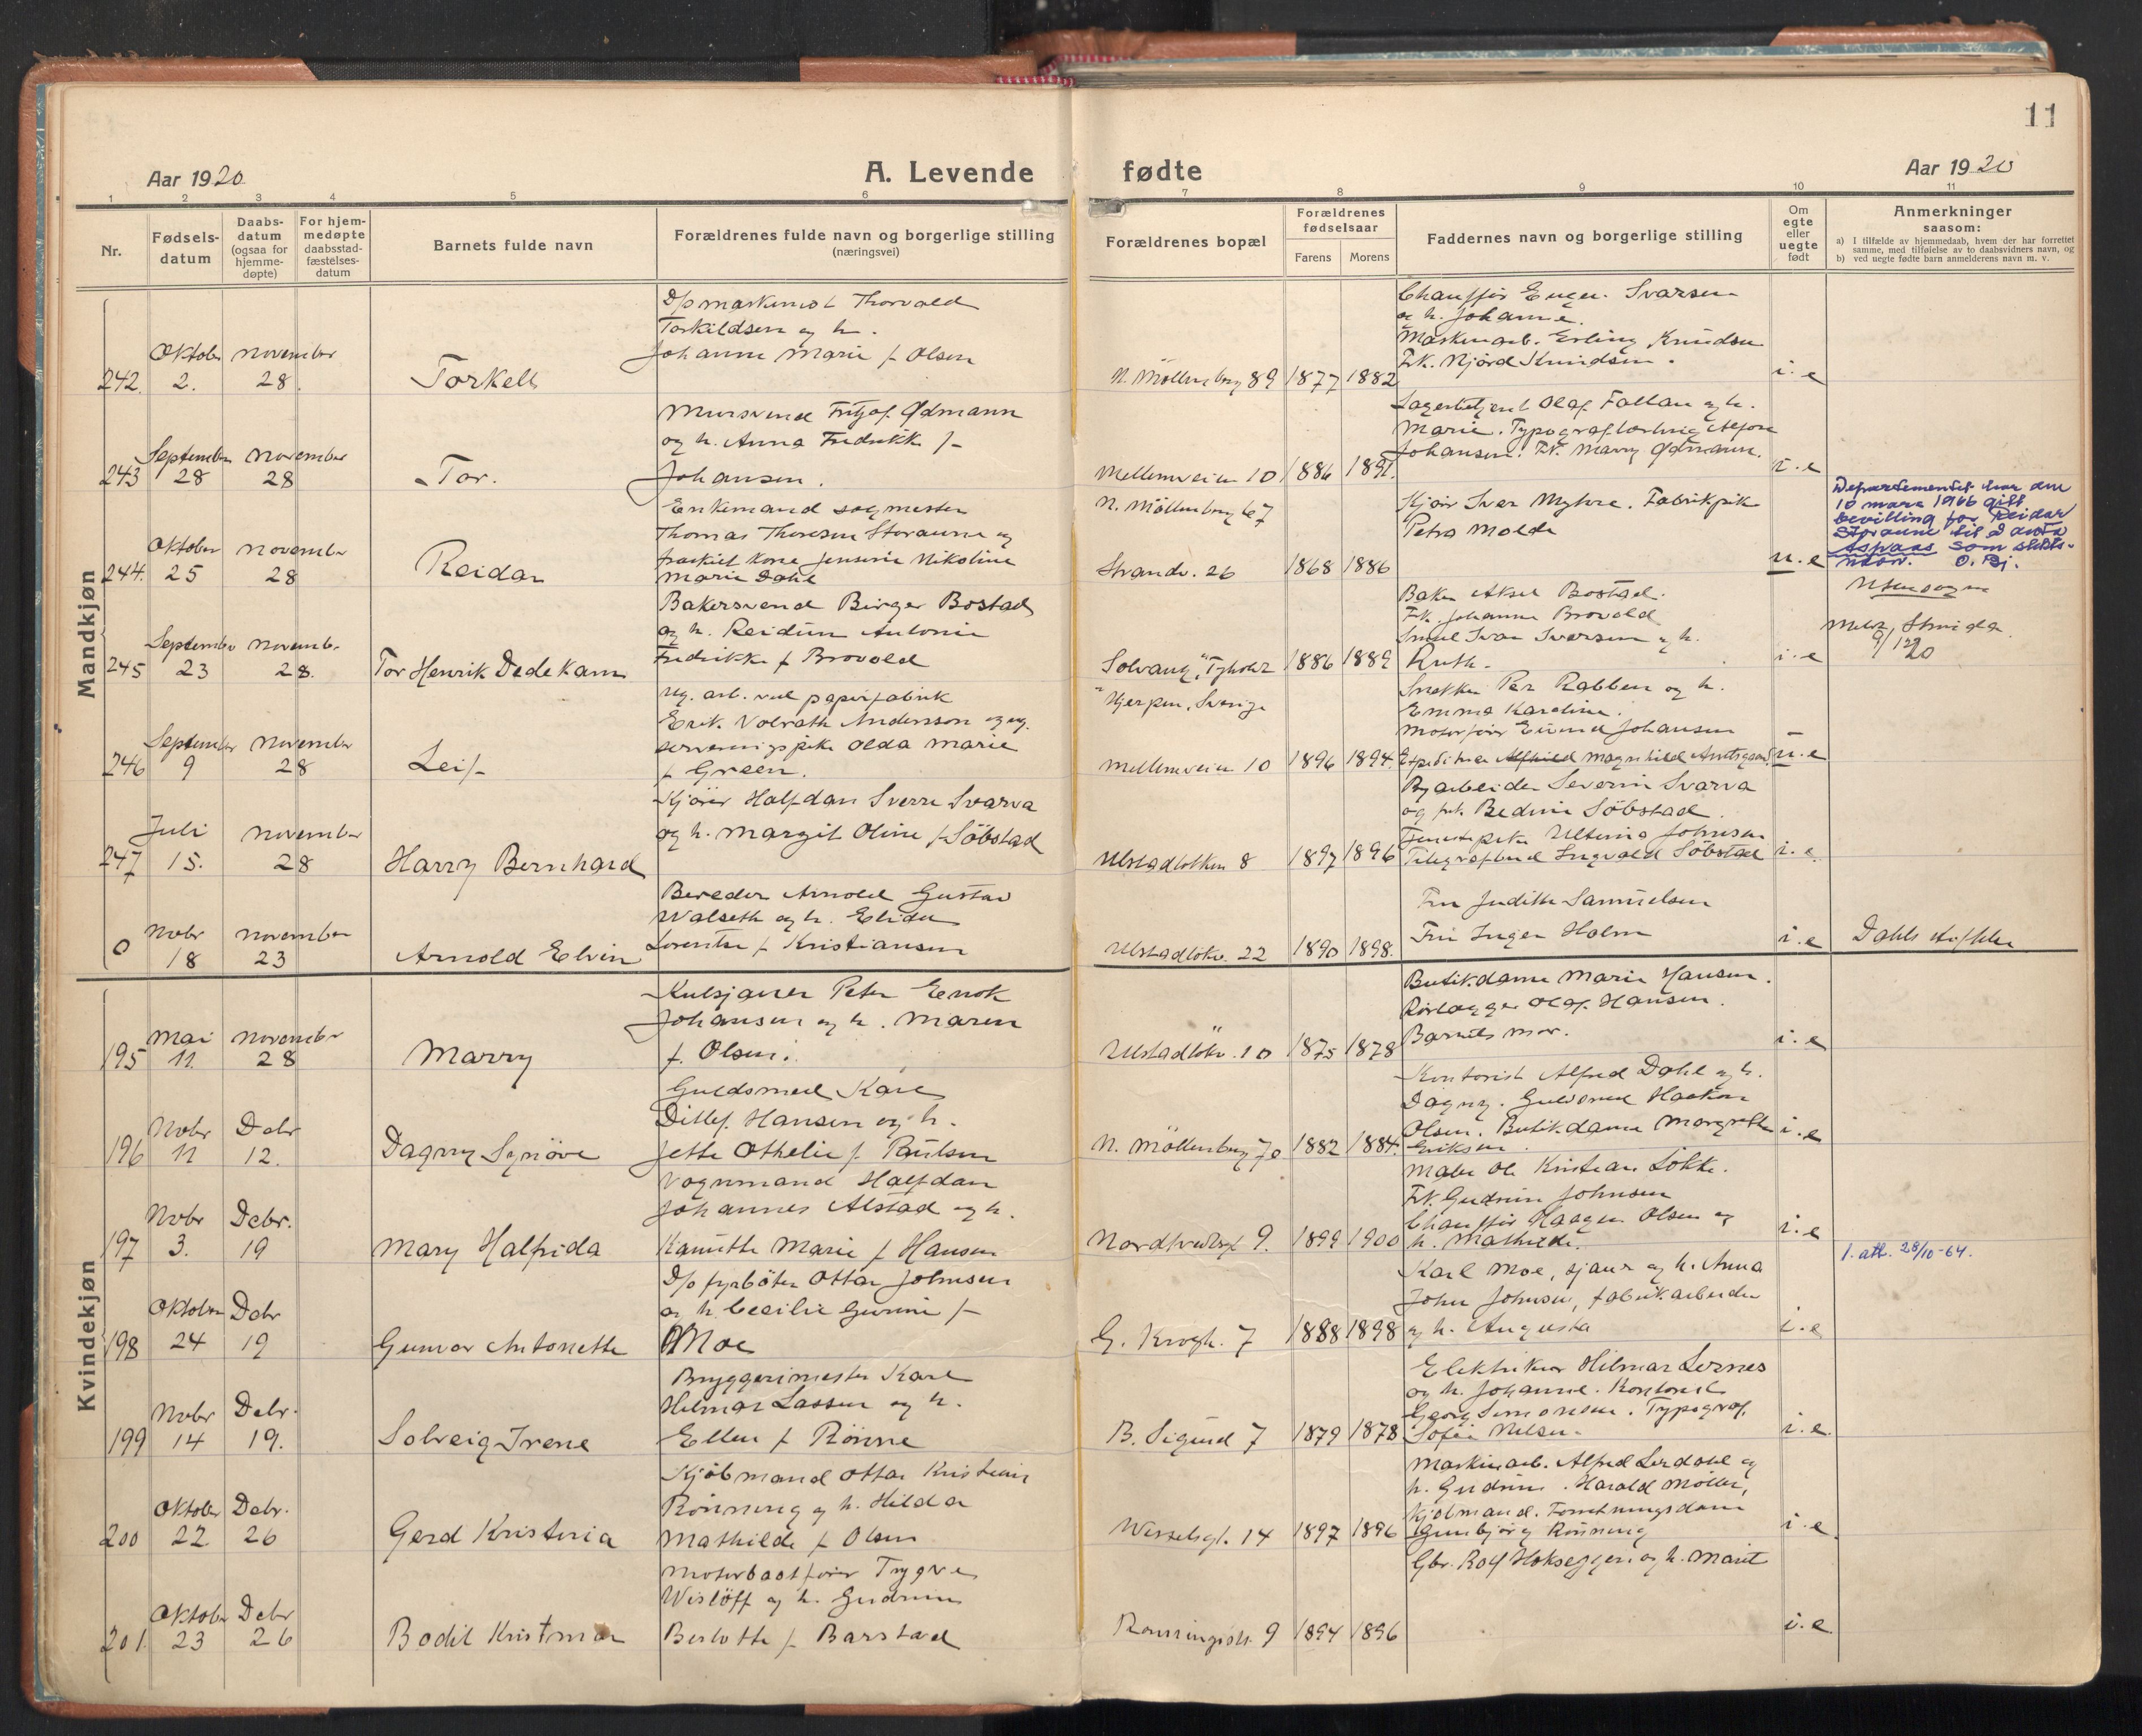 11
Aar 1920
A. Levende fødte
Aar 1920
1 2 3 4 5 6 7 8 9 10 11
Nr.
Fødsels-
datum
Daabs-
datum
(ogsaa for
hjemme-
døpte)
For hjem-
medøpte
daabsstad-
fæstelses-
datum
Barnets fulde navn
Forældrenes fulde navn og borgerlige stilling
(næringsvei)
Forældrenes bopæl
Forældrenes
fødselsaar
Farens Morens
Faddernes navn og borgerlige stilling
Om
egte
eller
uegte
født
Anmerkninger
saasom:
a) I tilfælde av hjemmedaab, hvem der har forrettet
samme, med tilføielse av to daabsvidners navn, og
b) ved uegte fødte barn anmelderens navn m. v.
Mandkjøn
242. Oktober 2. november 28.
Torkell
D/s maskinist Thorvald
Torkildsen og h.
Johanne Marie f. Olsen
N. Möllenberg 89 1877 1882
Chauffør Eugen Svarsen
og h. Johanne.
Maskinarb. Erling Knudsen
Frk. Njörd Knudsen.
i. e
243 September 28 november 28
Tor.
Mursvend Fritjof Ødmann
og h. Anna Fredrikke f.
Johansen.
Mellemveien 10 1886 1891.
Lagerbetjent Olaf Fallan og h.
Marie. Typograflærling Alfon
Johansen. Frk. Marry Ødmann.
i. e
244. Oktober 25 november 28
Reidar
Enkemand sagmester
Thomas Thoresen Storaune og
fraskilt kone Jensine Nikoline
Marie Dahl
N. Möllenberg 67
Strandv. 26 1868 1886
Kjörer Iver Myhre. Fabrikpike
Petra Molde
u. e
Departementet har den
10 mars 1966 gitt
bevilling for Reidar
Storaune til å anta
Aspaas som slekts-
navn. O. Bj.
245 September 23 november 28.
Tor Henrik Dedekam
Bakersvend Birger Bostad
og h. Reidun Antonie
Fredrikke f. Brovold
Solvang, Tyholt 1886 1889
Baker Aksel Bostad.
Frk. Johanna Brovold
Smed Ivar Iversen og h.
Ruth.
i. e
9/12 20
246 September 9 november 28
Leif
Ug. arb. ved papirfabrik
Erik Volrath Andersson og ug.
serveringspike Olda Marie
f. Green.
Hjerpen, Sverige
Mellemveien 10 1896 1894.
Snekker Per Rabben og h.
Emma Karoline.
Motorfører Eivind Johansen
Magnhild
u. e
247 Juli 15. november 28
Harry Bernhard
Kjörer Halfdan Sverre Svarva
og h. Margit Oline f. Söbstad
Ulstadlökken 8 1897 1896
Byarbeider Severin Svarva
og frk. Bedine Söbstad.
Tjenestepike Johnsen
Telegrafbud Ingvald Söbstad
i. e.
0 Nobr 18 november 23
Arnold Elvin
Bereder Arnold Gustav
Walseth og h. Elida
Lorentse f. Kristiansen
Ulstadlökv. 22 1890 1898.
Fru Judith Samuelsen
Fru Inger Holm
i. e
Kvindekjøn
195 Mai 11. november 28
Marry
Kulsjauer Peter Enok
Johansen og h. Maren
f. Olsen.
Ulstadlökv. 10 1875 1878
Butikdame Marie Hansen.
Rörlægger Olaf Hansen.
Barnets mor.
i. e
196 Nobr 11 Debr 12.
Dagny Synöve
Guldsmed Karl
Ditlef Hansen og h.
Jette Othelie f. Paulsen
N. Möllenberg 70 1882 1884.
Kontorist Alfred Dahl og h.
Dagny. Guldsmed Haakon
Olsen. Butikdame Margrethe
Eriksen.
i. e
197 Nobr 3. Debr. 19
Mary Halfrida
Vognmand Halfdan
Johannes Alstad og h.
Kamitte Marie f. Hansen
9. 1899 1900
Maler Ole Kristian Lökke.
Frk. Gudrun Johnsen
Chauffør Haagen Olsen og
h. Mathilde.
i. e
1. att. 28/10-64.
198 Oktober 24 Debr 19
Gunvor Antonette
D/s fyrböter Ottar Johnsen
og h. Cecilie Gurine f.
Moe
G. Krogh. 7 1888 1898
Karl Moe, sjauer og h. Anna
John Johnsen, fabrikarbeider
og h. Augusta
i. e
199 Nobr 14 Debr. 19.
Solveig Irene
Bryggerimester Karl
Hilmar Lassen og h.
Ellen f. Rönne
B. Sigurd 7 1879 1878
Elektriker Hilmar Lernes
og h. Johanne. Kontorist
Georg Simonsen. Typograf
Sofie Nilsen.
i. e.
200 Oktober 22. Debr. 26
Gerd Kristinia
Kjöbmand Ottar Kristinius
Rönning og h. Hilda
Mathilde f. Olsen
Wesselsgt. 14 1897 1896
Maskinarb. Alfred Lerdahl og
h. Gudrun. Harald Möller,
kjöbmand. Forretningsdame
Gunbjörg Rönning
i. e.
201. Oktober 23 Debr 26
Bodil Kristmar
Motorbaatfører Trygve
Wislöff og h. Gudrun
Berlotte f. Barstad
Rönningsletv. 9 1894 1896
Gbr. Rolf Hokseggen og h. Marit
i. e.